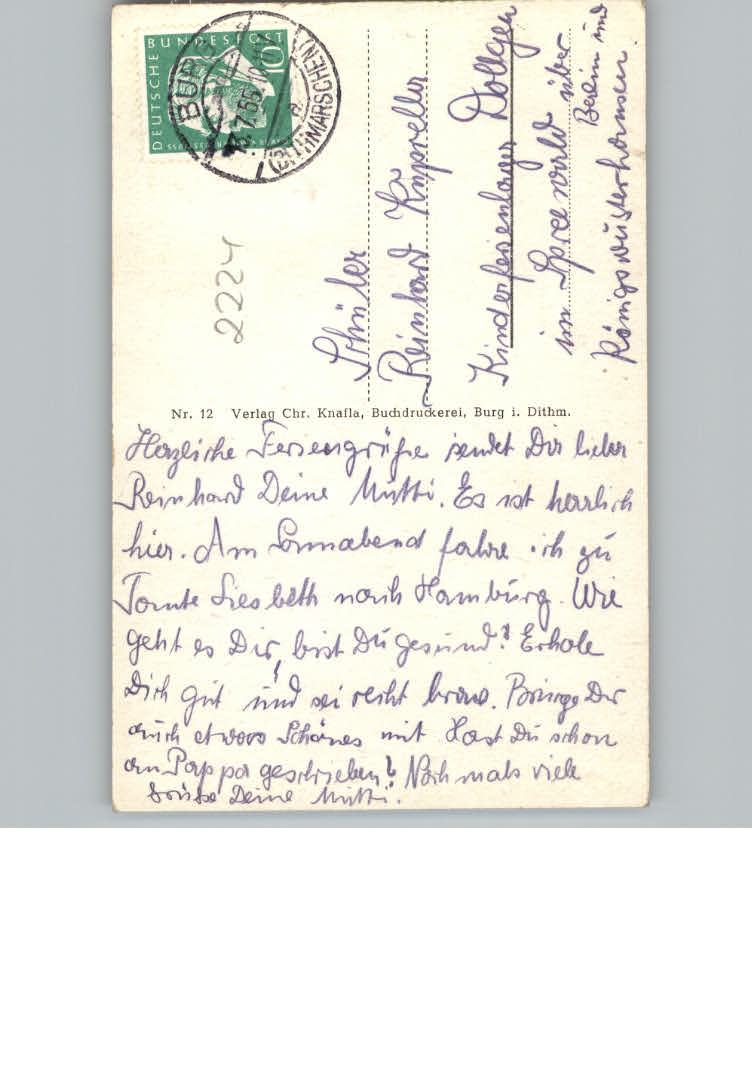 DEUTSCHE
BUNDESPOST
10
BURG
7.55
(DITHMARSCHEN)
a
2224
Schüler
Reinhard
Kinderferienlager
im Spreewald über
Berlin und
Königswusterhausen.
Nr. 12 Verlag Chr. Knafla, Buchdruckerei, Burg i. Dithm.
Herzliche Feriengrüße sendet Dir lieber
Reinhard Deine Mutti. Es ist herrlich
hier. Am Sonnabend fahre ich zu
Tante Liesbeth nach Hamburg. Wie
geht es Dir, bist Du gesund? Erhole
Dich gut und sei recht brav. Bringe Dir
auch etwas Schönes mit Hast Du schon
an Pappa geschrieben? Nochmals viele
Grüße Deine Mutti.